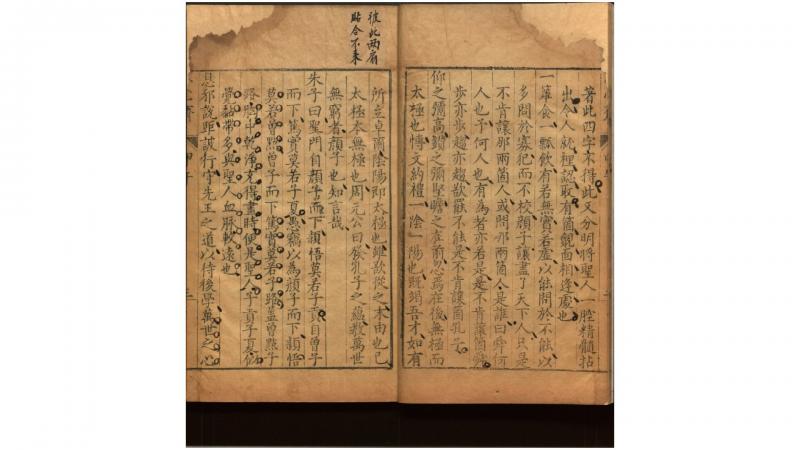 著此四字不得此又分明將聖人一腔精髓拈
出令人就裡認取有箇覿面相逢處也
一簞食一瓢飲有若無實若虛以能問於不能以
多問於寡犯而不校顏子讓盡了天下人只是
不肯讓那兩箇人或問那兩箇人是誰曰舜何
人也予何人也有為者亦若是是不肯讓箇舜
步亦步趨亦趨欲罷不能是不肯讓箇孔子
仰之彌高鑽之彌堅瞻之在前忽焉在後無極而
太極也博文約禮一陰一陽也既竭吾才如有
彼此两扇
貼合不来
所立卓爾陰陽即太極也雖欲從之末由也已
太極本無極也周元公曰發孔子之蘊教萬世
無窮者顏子也知言哉
朱子曰聖門自顏子而下穎悟莫若子貢自曾子
而下篤實莫若子夏愚竊以為顏子而下穎悟
莫若曾點曾子而下篤實莫若子路蓋曾點子
路胸中乾淨克得盡時便是聖人子貢子夏似
帶多與聖人血脈較遠也
息邪說距詖行守先王之道以待後學萬世之心